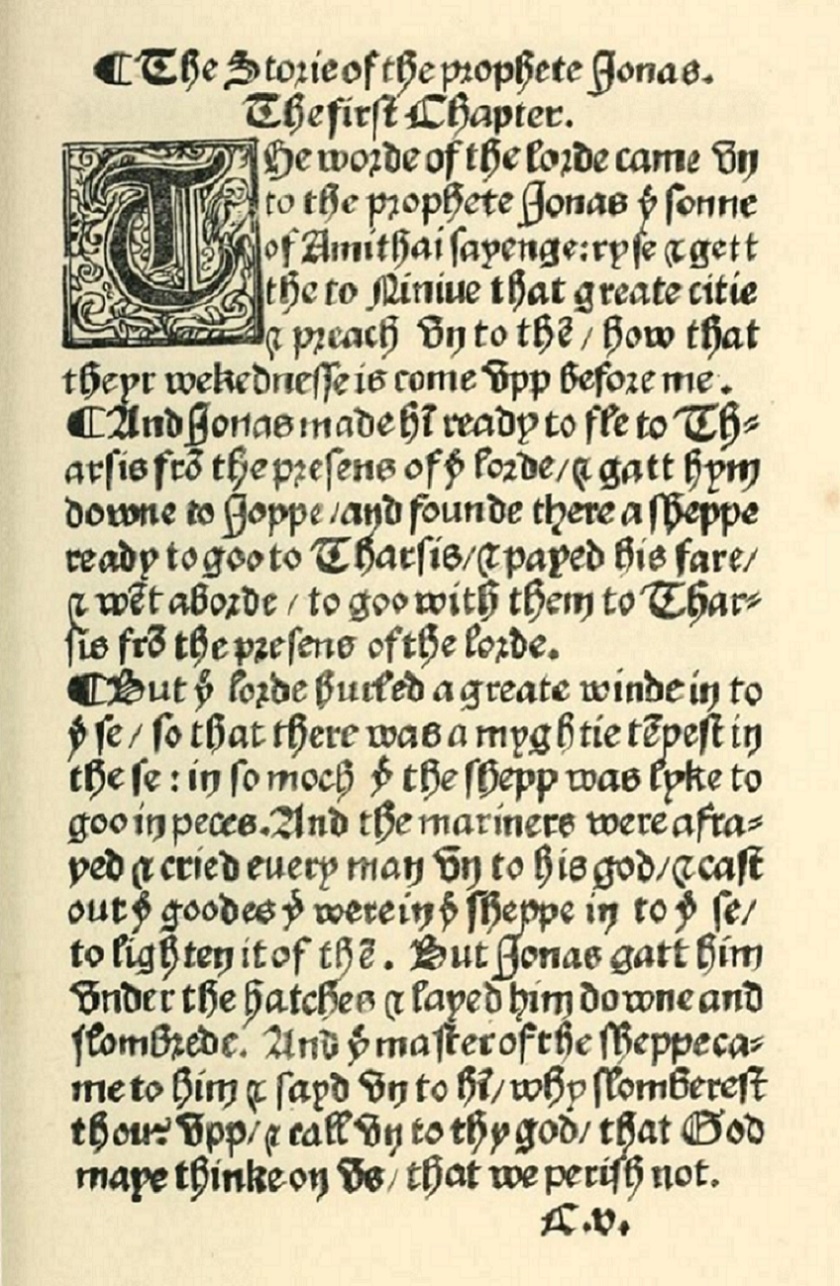 ¶The Storie of the prophete Jonas.
The first Chapter.
The worde of the lorde came vn
to the prophete Jonas yͤ sonne
of Amithai sayenge: ryse & gett
the to Niniue that greate citie
& preach vn to thē / how that
theyr wekednesse is come vpp before me.
¶And Jonas made hī ready to fle to Th⸗
arsis frō the presens of yͤ lorde / & gatt hym
downe to Joppe / and founde there a sheppe
ready to goo to Tharsis / & payed his fare /
& wēt aborde / to goo with them to Thar⸗
sis frō the presens of the lorde.
¶But yͤ lorde hurled a greate winde in to
yͤ se / so that there was a myghtie tēpest in
the se: in so moch yͭ the shepp was lyke to
goo in peces. And the mariners were afra⸗
yed & cried euery man vn to his god / & cast
out yͤ goodes yͭ were in yͤ sheppe in to yͤ se /
to lighten it of thē. But Jonas gatt him
vnder the hatches & layed him downe and
slombrede. And yͤ master of the sheppe ca⸗
me to him & sayd vn to hī / why slomberest
thou? vpp / & call vn to thy god / that God
maye thinke on vs / that we perish not.
C.v.